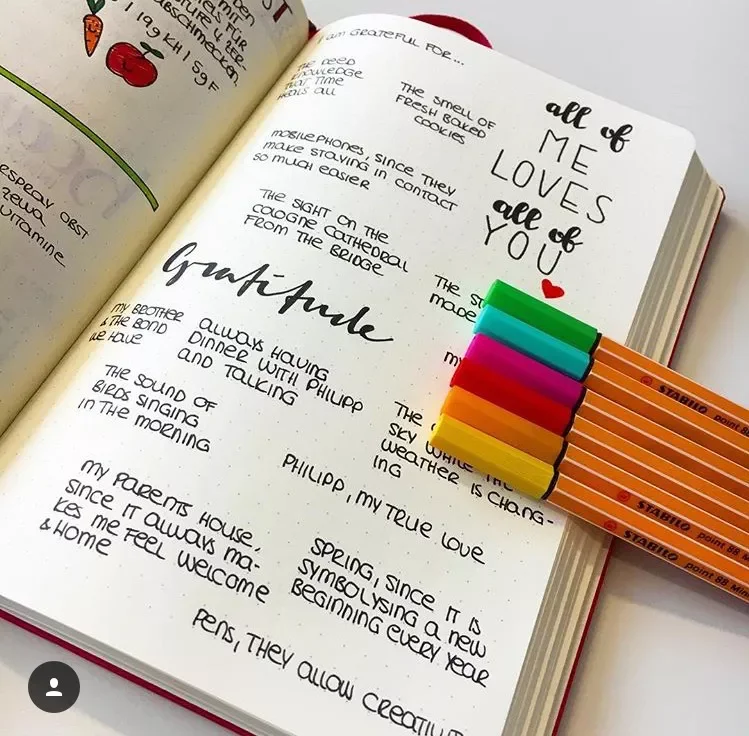 MIT
FÜR
4 ZER-
ABSCHMECKEN.
19g KH | 59F
OBST
ZEWA
VITAMINE
I am GRATEFUL FOR...
THE DEEP
KNOWLEDGE
THAT TIME
HEALS ALL
THE SMELL OF
FRESH BAKED
COOKIES
all of
ME
LOVES
all of
YOU
MOBILEPHONES, SINCE THEY
MAKE STAYING IN CONTACT
SO MUCH EASIER
THE SIGHT ON THE
COLOGNE CATHEDRAL
FROM THE BRIDGE
Gratitude
THE
MADE
MY BROTHER
& THE BOND
WE HAVE
ALWAYS HAVING
DINNER WITH PHILIPP
AND TALKING
THE
SKY WHILE THE
WEATHER IS CHANG-
ING
THE SOUND OF
BIRDS SINGING
IN THE MORNING
PHILIPP, MY TRUE LOVE
MY PARENTS HOUSE,
SINCE IT ALWAYS MA-
KES ME FEEL WELCOME
& HOME
SPRING, SINCE IT IS
SYMBOLYSING A NEW
BEGINNING EVERY YEAR
PENS, THEY ALLOW
STABILO point
STABILO point 88
STABILO point 88